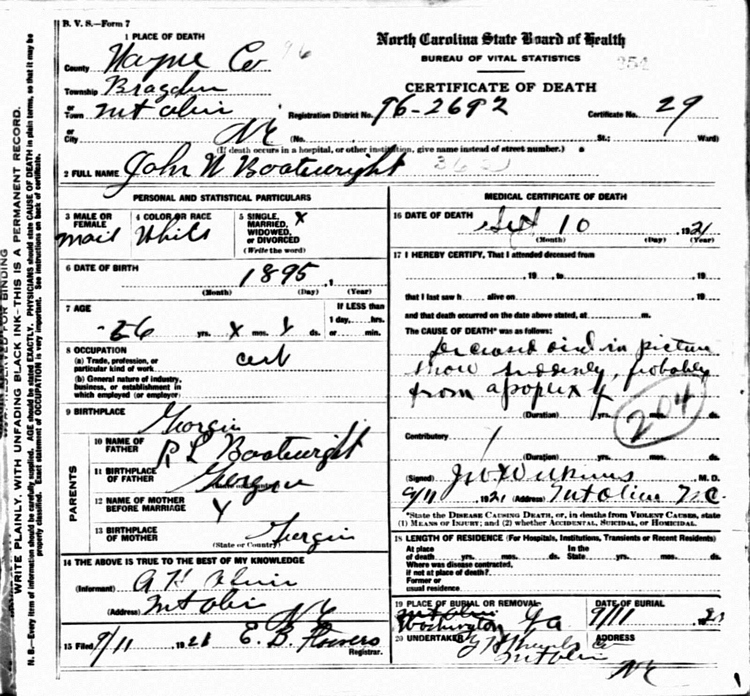 B. V. S.—Form 7
1 PLACE OF DEATH
County Wayne Co 96
Township Brogden
or Town Mt Olive
or City NC
North Carolina State Board of Health
BUREAU OF VITAL STATISTICS
CERTIFICATE OF DEATH
Registration District No. 96-2692 Certificate No. 29
(No. St.; Ward)
(If death occurs in a hospital, or other institution, give name instead of street number.)
2 FULL NAME John W Boatwright
WRITE PLAINLY, WITH UNFADING BLACK INK—THIS IS A PERMANENT RECORD.
N. B.—Every item of information should be carefully supplied. AGE should be stated EXACTLY. PHYSICIANS should state CAUSE OF DEATH in plain terms, so that it may be
properly classified. Exact statement of OCCUPATION is very important. See instructions on back of certificate.
PERSONAL AND STATISTICAL PARTICULARS
3 MALE OR FEMALE
Mail
4 COLOR OR RACE
White
5 SINGLE, MARRIED, WIDOWED, OR DIVORCED x
(Write the word)
6 DATE OF BIRTH
1895, 1
(Month) (Day) (Year)
7 AGE
26 yrs. x mos. x ds.
If LESS than
1 day, hrs.
or min.
8 OCCUPATION
(a) Trade, profession, or
particular kind of work
(b) General nature of industry,
business, or establishment in
which employed (or employer)
9 BIRTHPLACE
Georgia
PARENTS
10 NAME OF FATHER R L Boatwright
11 BIRTHPLACE OF FATHER Georgia
12 NAME OF MOTHER BEFORE MARRIAGE
13 BIRTHPLACE OF MOTHER Georgia
(State or Country)
14 THE ABOVE IS TRUE TO THE BEST OF MY KNOWLEDGE
(Informant)
(Address) Mt Olive
NC
15 Filed 9/11 1921 E. B. Flowers
Registrar.
MEDICAL CERTIFICATE OF DEATH
16 DATE OF DEATH
Sept 10 1921
(Month) (Day) (Year)
17 I HEREBY CERTIFY, That I attended deceased from
, 19 , to , 19
that I last saw h alive on , 19
and that death occurred on the date above stated, at m.
The CAUSE OF DEATH* was as follows:
Deceased died in picture
show suddenly, probably
from apoplexy
(Duration) yrs. mos. ds.
204
Contributory
(Duration) yrs. mos. ds.
(Signed) M. D.
9/11 1921 (Address) Mt Olive N.C.
*State the DISEASE CAUSING DEATH, or, in deaths from VIOLENT CAUSES, state
(1) MEANS OF INJURY; and (2) whether ACCIDENTAL, SUICIDAL, or HOMICIDAL.
18 LENGTH OF RESIDENCE (For Hospitals, Institutions, Transients or Recent Residents)
At place of death yrs. mos. ds. In the State yrs. mos. ds.
Where was disease contracted,
if not at place of death?
Former or
usual residence
19 PLACE OF BURIAL OR REMOVAL
Washington Ga
DATE OF BURIAL
9/11 21
20 UNDERTAKER
ADDRESS
Mt Olive
NC